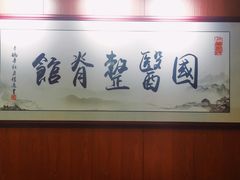 國醫整脊館